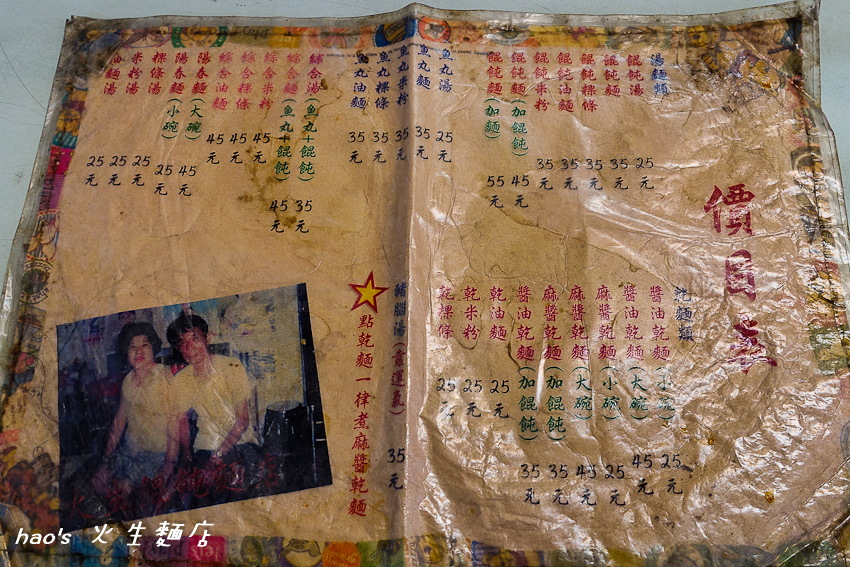 價目表
湯麵類
餛飩湯 25元
餛飩麵 35元
餛飩粿條 35元
餛飩油麵 35元
餛飩米粉 35元
餛飩麵(加餛飩) 45元
餛飩麵(加麵) 55元
魚丸湯 25元
魚丸麵 35元
魚丸米粉 35元
魚丸粿條 35元
魚丸油麵 35元
綜合湯(魚丸+餛飩) 35元
綜合麵(魚丸+餛飩) 45元
綜合米粉 45元
綜合粿條 45元
綜合油麵 45元
陽春麵(大碗) 45元
陽春麵(小碗) 25元
粿條湯 25元
米粉湯 25元
油麵湯 25元
乾麵類
醬油乾麵(小碗) 25元
醬油乾麵(大碗) 45元
麻醬乾麵(小碗) 25元
麻醬乾麵(大碗) 45元
麻醬乾麵(加餛飩) 35元
醬油乾麵(加餛飩) 35元
乾油麵 25元
乾米粉 25元
乾粿條 25元
豬腦湯(靠運氣) 35元
點乾麵一律煮麻醬乾麵
hao's 火生麵店